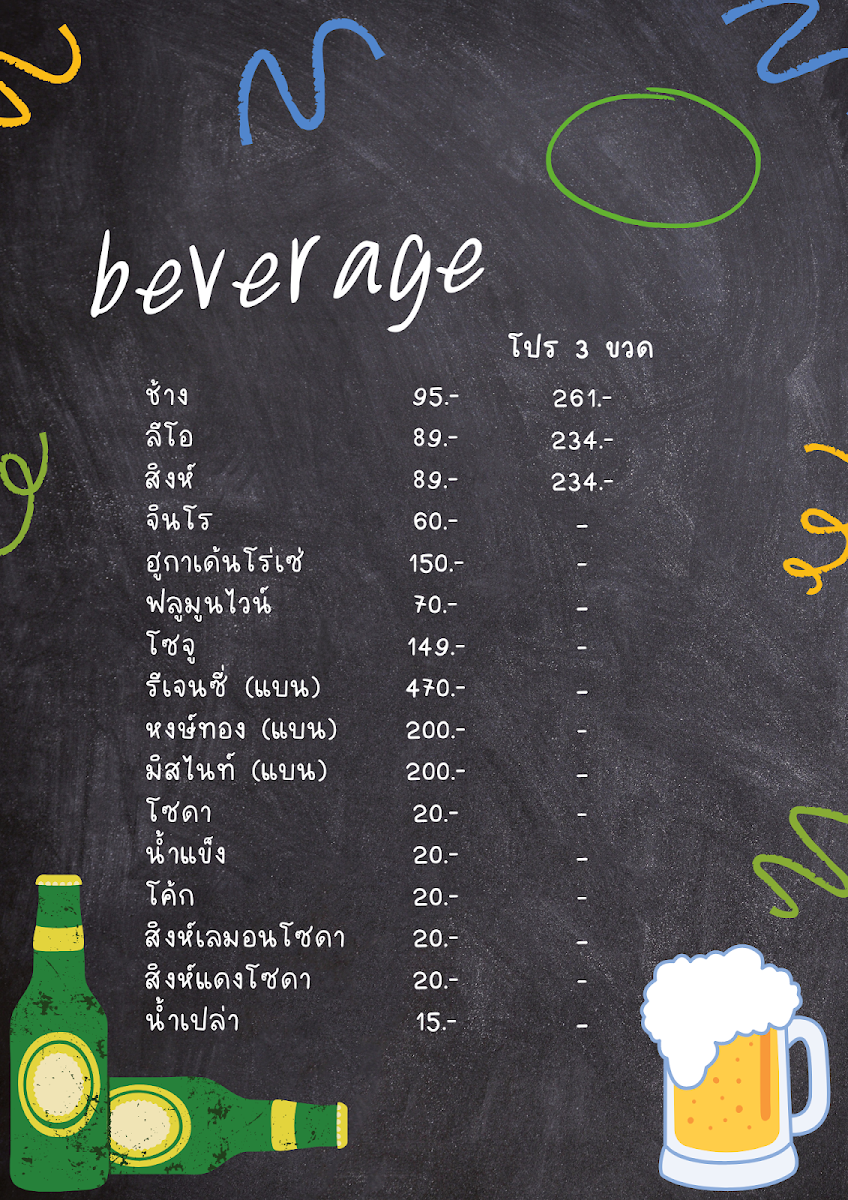 beverage
โปร 3 ขวด
ช้าง 95.- 261.-
ลีโอ 89.- 234.-
สิงห์ 89.- 234.-
จินโร 60.- -
ฮูกาเด้นโร่เซ่ 150.- -
ฟลูมูนไวน์ 70.- -
โซจู 149.- -
รีเจนซี่ (แบน) 470.- -
หงษ์ทอง (แบน) 200.- -
มิสไนท์ (แบน) 200.- -
โซดา 20.- -
น้ำแข็ง 20.- -
โค้ก 20.- -
สิงห์เลมอนโซดา 20.- -
สิงห์แดงโซดา 20.- -
น้ำเปล่า 15.- -